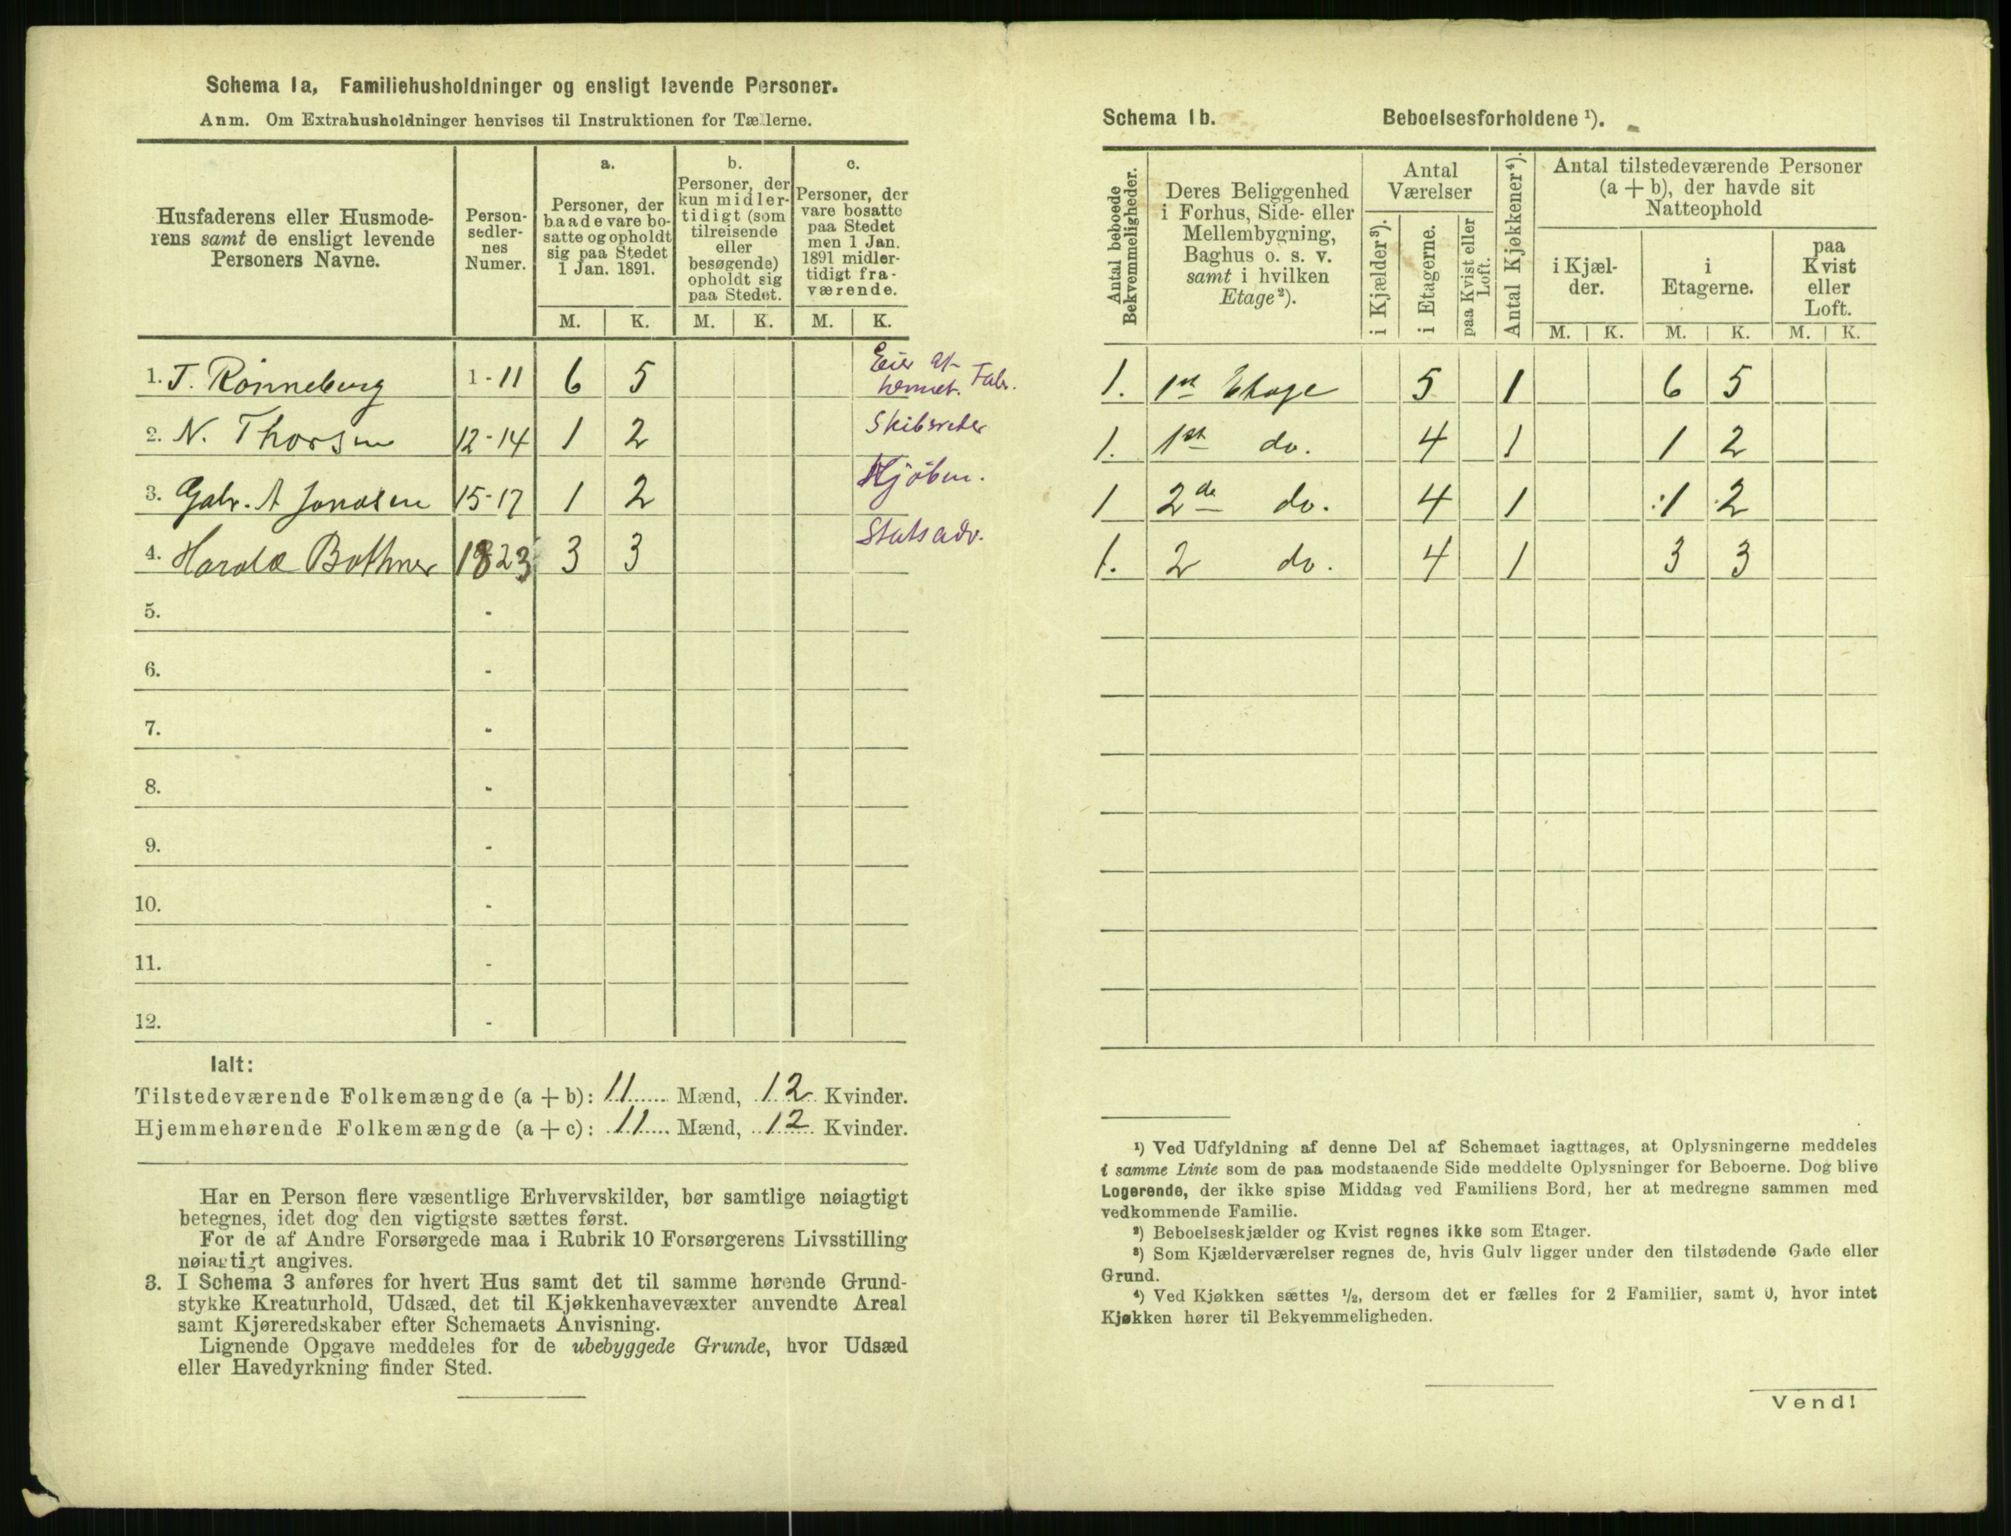 Schema 1a, Familiehusholdninger og ensligt levende Personer.
Anm. Om Extrahusholdninger henvises til Instruktionen for Tællerne.
Husfaderens eller Husmode-
rens samt de ensligt levende
Personers Navne.
Person-
sedler-
nes
Numer.
a.
Personer, der
baade vare bo-
satte og opholdt
sig paa Stedet
1 Jan. 1891.
b.
Personer, der
kun midler-
tidigt (som
tilreisende
eller
besøgende)
opholdt sig
paa Stedet.
c.
Personer, der
vare bosatte
paa Stedet
men 1 Jan.
1891 midler-
tidigt fra-
værende.
M. K. M. K. M. K.
1. T. Rönneberg 1-11 6 5 Eier Fabr.
2. N. Thorsen 12-14 1 2 Skibsreder
3. Gabr. A Jonasen 15-17 1 2 Kjøbm.
4. Harald Bothner 18 23 3 3 Statsadv.
5. -
6. -
7. -
8. -
9. -
10. -
11. -
12. -
Ialt:
Tilstedeværende Folkemængde (a + b): 11 Mænd, 12 Kvinder.
Hjemmehørende Folkemængde (a + c): 11 Mænd, 12 Kvinder.
Har en Person flere væsentlige Erhvervskilder, bør samtlige nøiagtigt
betegnes, idet dog den vigtigste sættes først.
For de af Andre Forsørgede maa i Rubrik 10 Forsørgerens Livsstilling
nøiagtigt angives.
3. I Schema 3 anføres for hvert Hus samt det til samme hørende Grund-
stykke Kreaturhold, Udsæd, det til Kjøkkenhavevæxter anvendte Areal
samt Kjøreredskaber efter Schemaets Anvisning.
Lignende Opgave meddeles for de ubebyggede Grunde, hvor Udsæd
eller Havedyrkning finder Sted.
Schema 1b. Beboelsesforholdene ¹).
Antal beboede
Bekvemmeligheder.
Deres Beliggenhed
i Forhus, Side- eller
Mellembygning,
Baghus o. s. v.
samt i hvilken
Etage ²).
Antal
Værelser
i Kjælder ³).
i Etagerne.
paa Kvist eller
Loft.
Antal Kjøkkener ⁴).
Antal tilstedeværende Personer
(a + b), der havde sit
Natteophold
i Kjæl-
der.
i
Etagerne.
paa
Kvist
eller
Loft.
M. K. M. K. M. K.
1. 1st Etage 5 1 6 5
1. 1st do. 4 1 1 2
1 2de do. 4 1 1 2
1. 2 do. 4 1 3 3
¹) Ved Udfyldning af denne Del af Schemaet iagttages, at Oplysningerne meddeles
i samme Linie som de paa modstaaende Side meddelte Oplysninger for Beboerne. Dog blive
Logerende, der ikke spise Middag ved Familiens Bord, her at medregne sammen med
vedkommende Familie.
²) Beboelseskjælder og Kvist regnes ikke som Etager.
³) Som Kjælderværelser regnes de, hvis Gulv ligger under den tilstødende Gade eller
Grund.
⁴) Ved Kjøkken sættes ½, dersom det er fælles for 2 Familier, samt 0, hvor intet
Kjøkken hører til Bekvemmeligheden.
Vend!